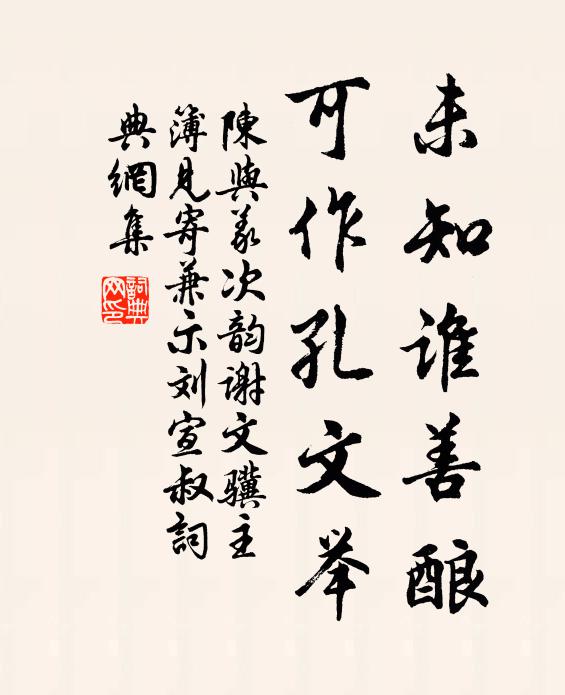 未知谁善酿
可作孔文举
陳與義次韵谢文骥主
簿見寄兼示刘宣叔詞
典網集
詞典网印